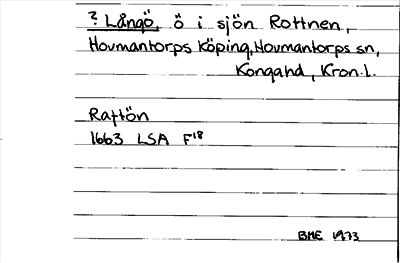 ? Långö, ö i sjön Rottnen,
Hovmantorps köping, Hovmantorps sn,
Konga hd, Kron.l.
Rattön
1663 LSA F18
BME 1973